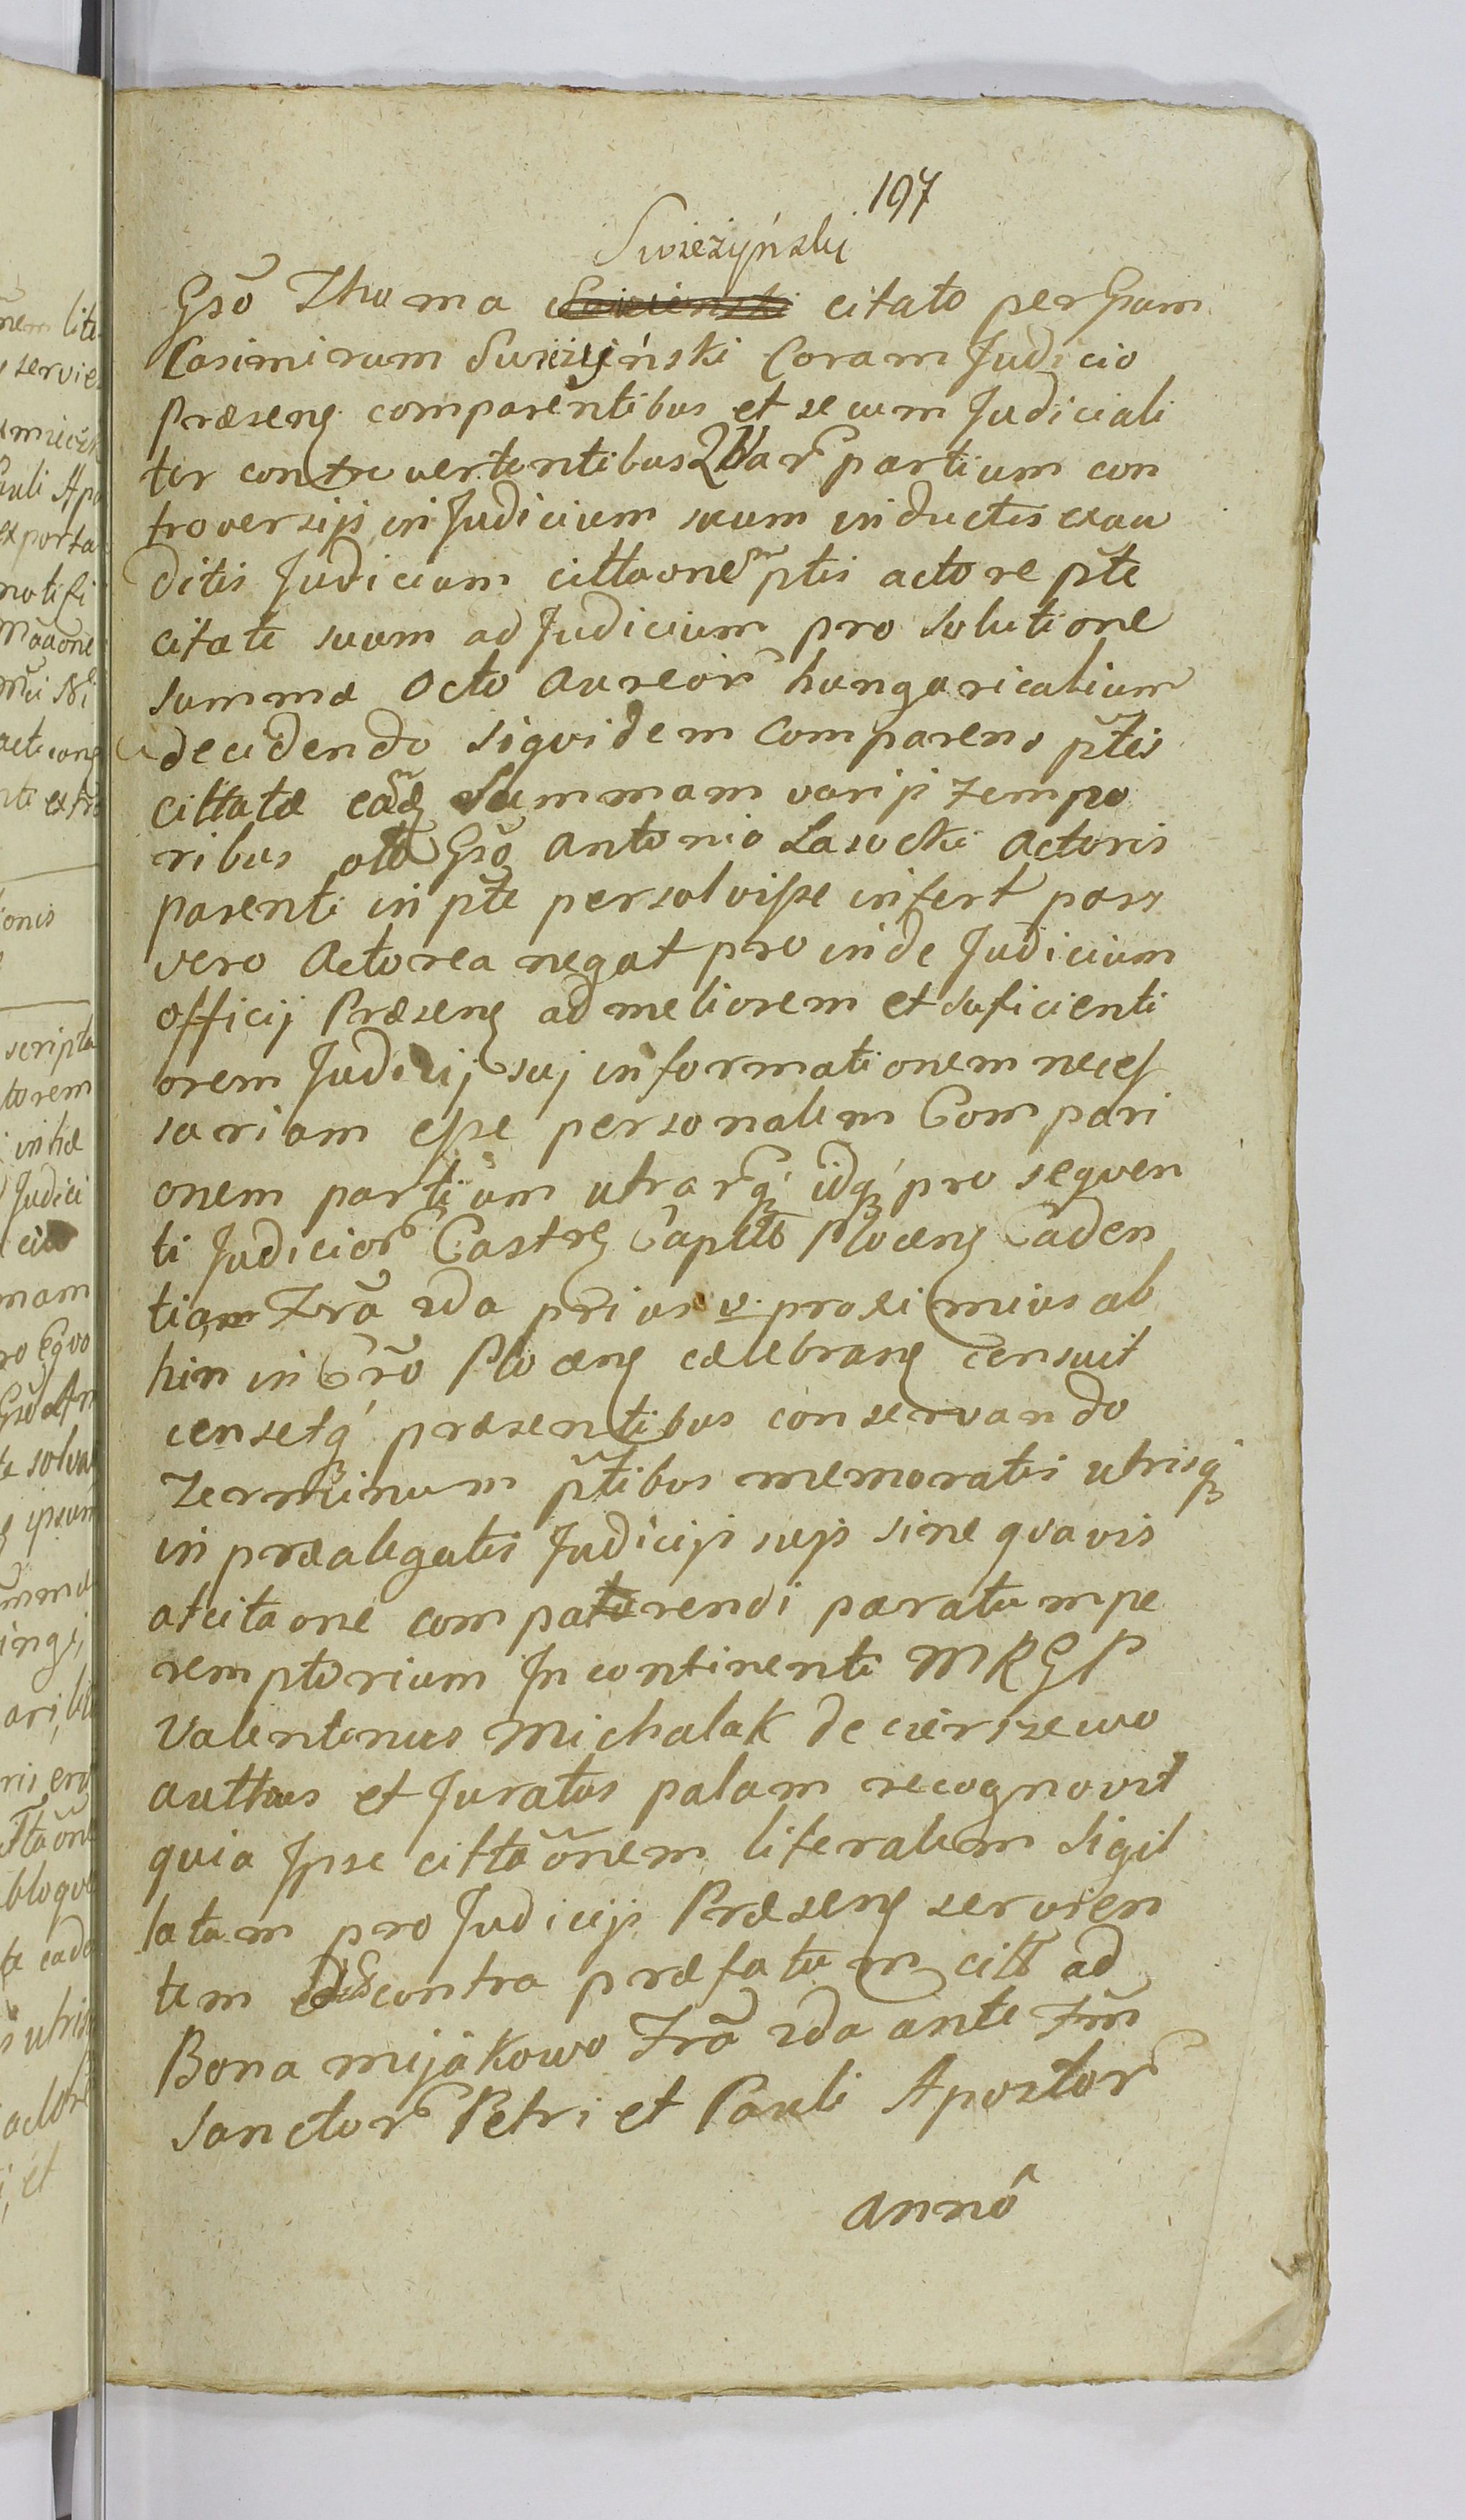 197
Swieżyński
Gsō Thoma Swizienski citato per Gsum
Casimirum Swieżyński Coram Judicio
præsenȝ comparentibus et secum Judiciali
ter controvertentibus Quar partium con
troversijs in Judicium suum inductis exau
ditis Judicium cittaonem ptis actore pte
citate suum ad Judicium pro solutione
summæ Octo Aureor hungaricalium
decidendo siquidem Comparens ptis
cittatæ eādȝ Summam varijs tempo
ribus Gsō Antonio Lasocki Actoris
parenti in pte persolvisse infert pars
vero Actorea negat proinde Judicium
officij Præsenȝ ad meliorem et suficienti
orem Judicij suj informationem neces
sariam esse personalem Compari
onem partium utrarqȝ idqȝ pro sequen
ti Judicior Castrȝ Capitō Plocenȝ Caden
tiam Frā 2da prius v. proximius ab
hin in Crō Plocenȝ celebranȝ censuit
censetqȝ præsentibus conservando
Terminum ptibus memoratis utrisqȝ
in præalegatis Judicijs sujs sine quavis
atcitaone comparendi paratum pe
remptorium In continenti MRGP
Valentinus Michalak de cierszewo
autthus et Juratus palam recognovit
quia Ipse cittaōnem literalem sigil
latam pro Judicijs Præsenȝ servien
tem contra præfatum citt ad
Bona mijakowo Frā 2da ante Fm
Sanctor Petri et Pauli Apostor
Annô